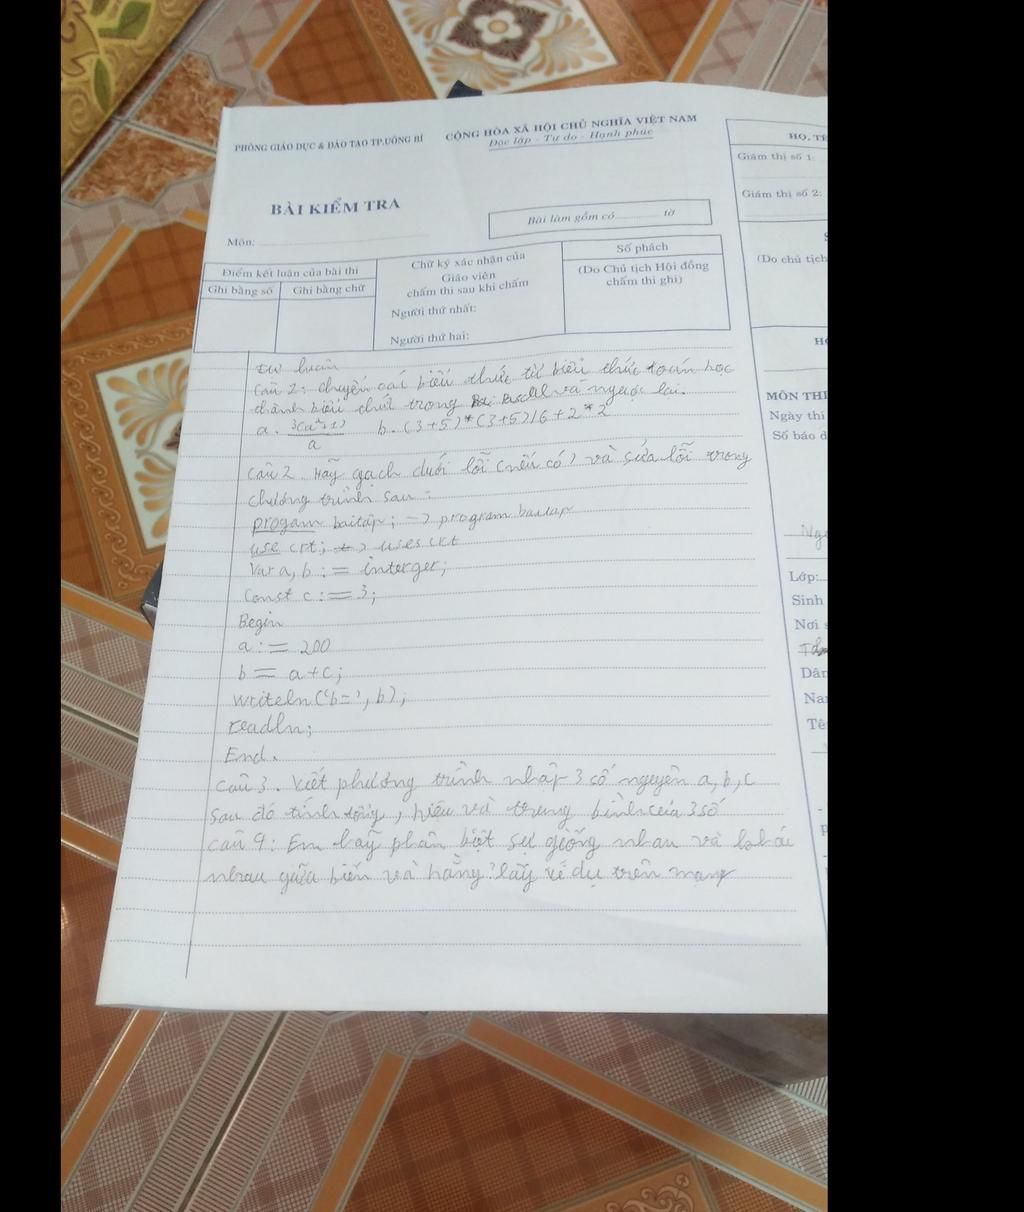 PHÒNG GIÁO DỤC & ĐÀO TẠO TP.UÔNG BÍ
CỘNG HÒA XÃ HỘI CHỦ NGHĨA VIỆT NAM
Độc lập - Tự do - Hạnh phúc
BÀI KIỂM TRA
Môn:
Bài làm gồm có tờ
Điểm kết luận của bài thi
Ghi bằng số
Ghi bằng chữ
Chữ ký xác nhận của
Giáo viên
chấm thi sau khi chấm
Người thứ nhất:
Người thứ hai:
Số phách
(Do Chủ tịch Hội đồng
chấm thi ghi)
HỌ, TÊ
Giám thị số 1:
Giám thị số 2:
(Do chủ tịch
MÔN THI
Ngày thi
Số báo d
Lớp:
Sinh
Nơi s
Dân
Na
Tê
tự luận
Câu 2: chuyển các biểu thức từ biểu thức toán học
thành biểu thức trong Pascal và ngược lại.
a. 3(a²+1)/a b. (3+5)*(3+5)/6+2*2
Câu 2. Hãy gạch dưới lỗi (nếu có) và sửa lỗi trong
chương trình sau:
progam baitap; -> program baitap
use crt; -> uses crt
Var a, b := interger;
Const c := 3;
Begin
a := 200
b = a+c;
writeln('b=', b);
readln;
End.
Câu 3. Viết phương trình nhập 3 số nguyên a, b, c
sau đó tính tổng, hiệu và trung bình của 3 số
Câu 4: Em hãy phân biệt sự giống nhau và khác
nhau giữa biến và hằng? lấy ví dụ trên mạng